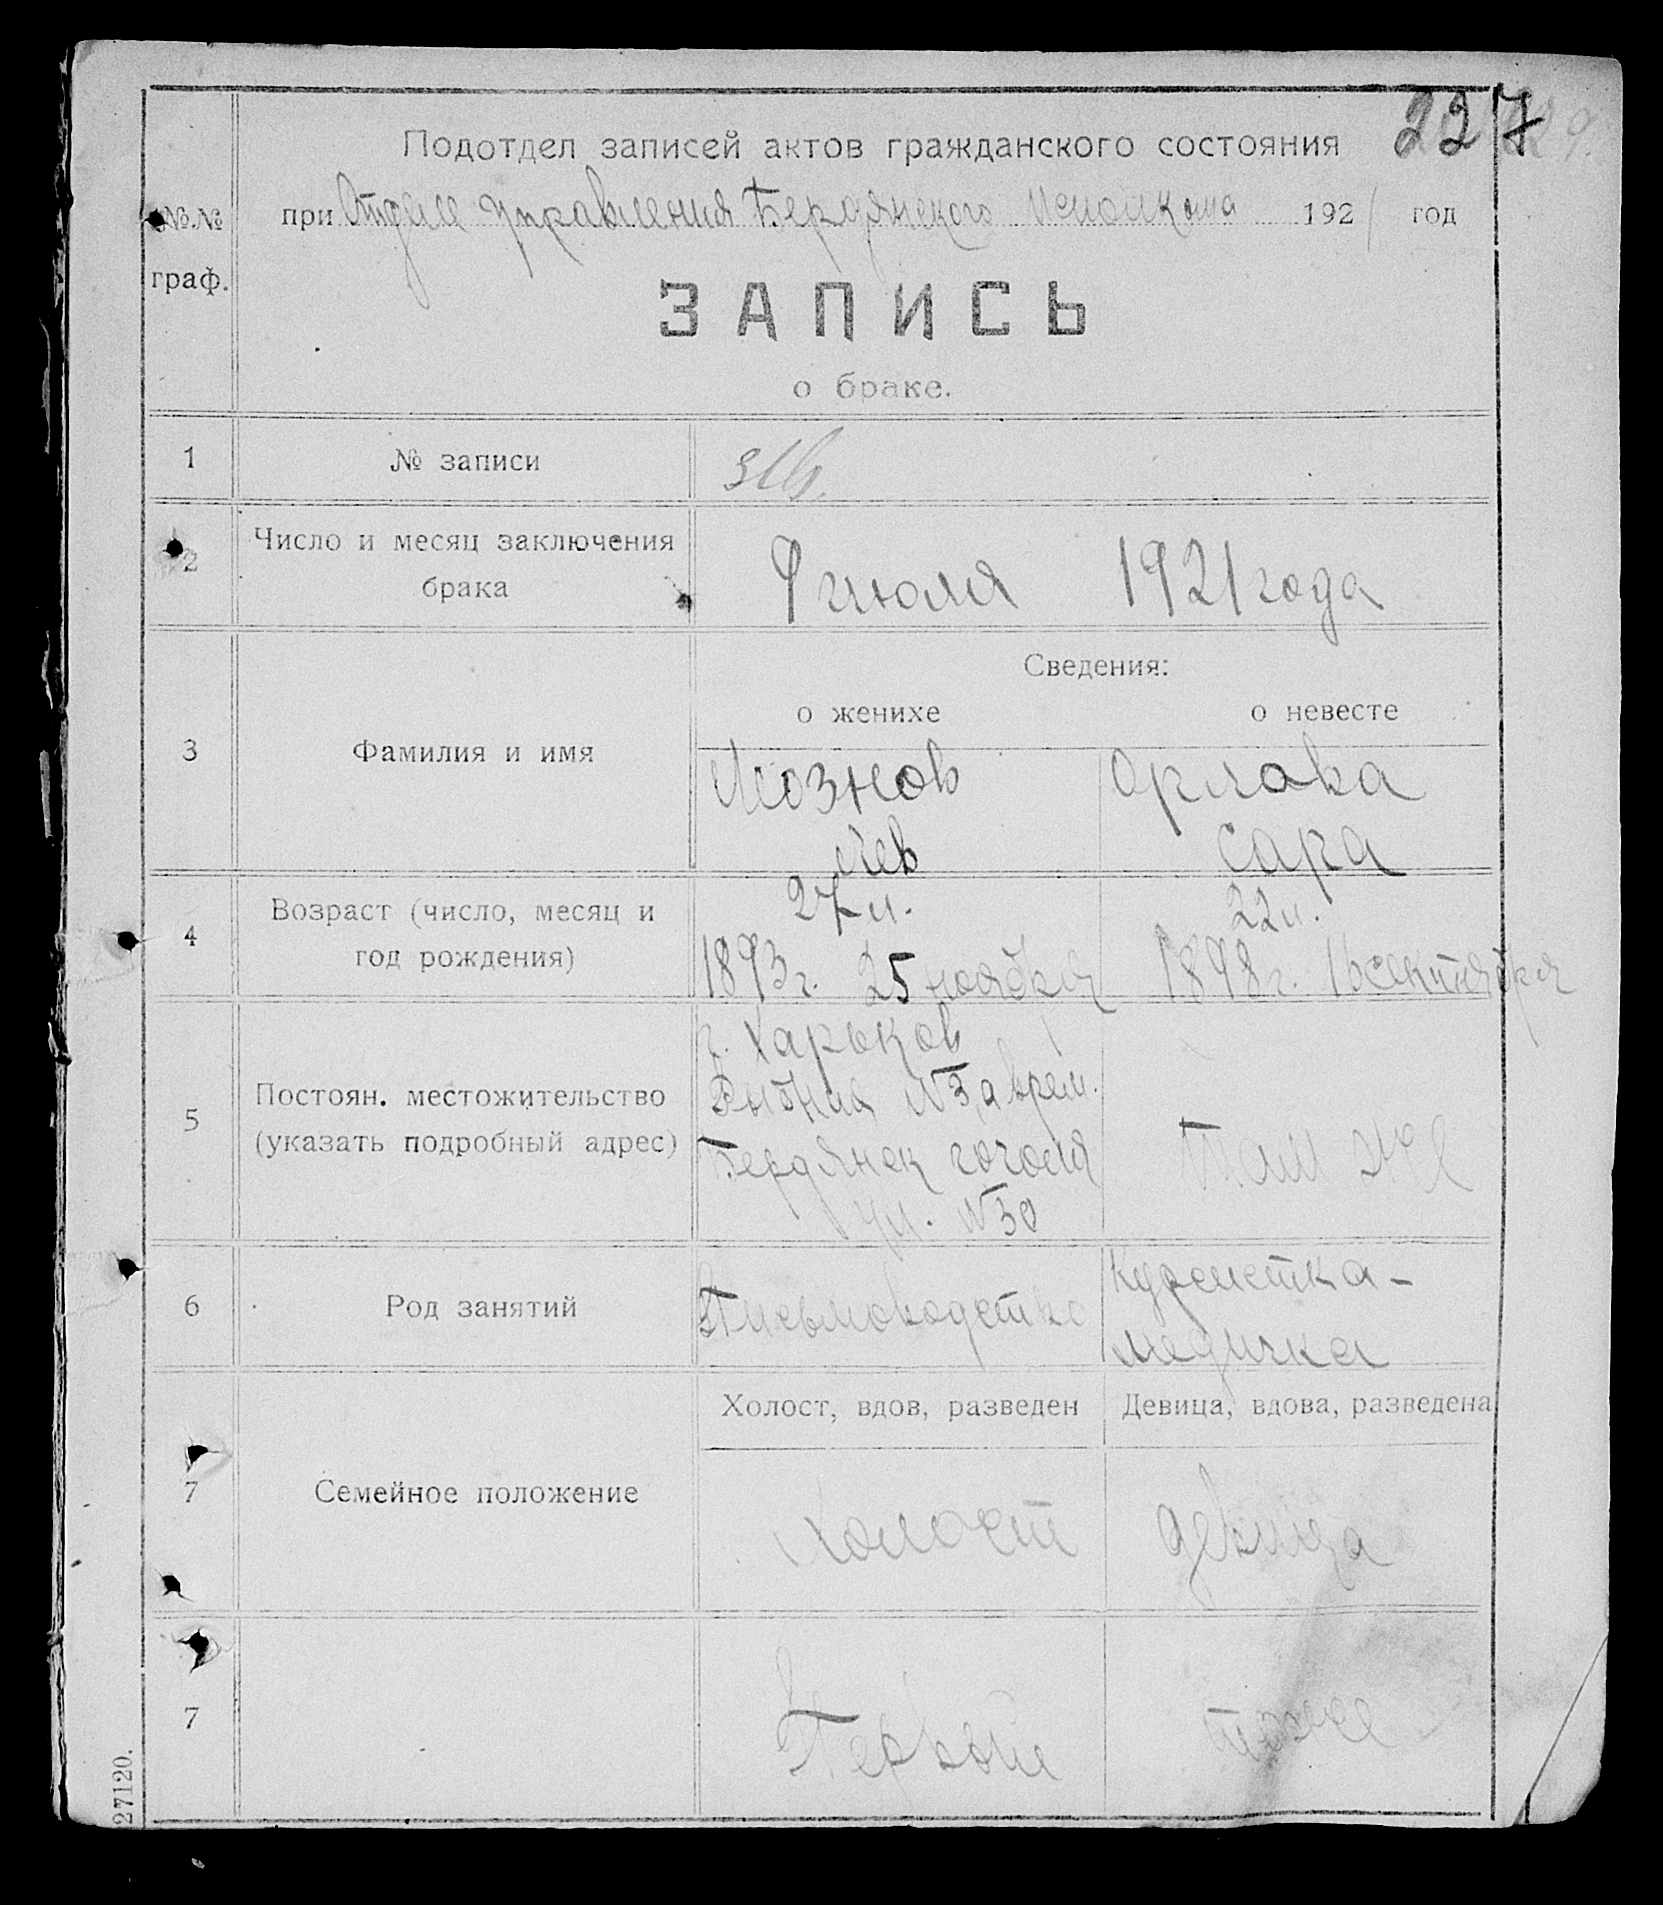 227
Подотдел записей актов гражданского состояния
№№ при Отделе управления Бердянского Исполкома 1921 год
граф.
ЗАПИСЬ
о браке.
1 № записи 316.
2 Число и месяц заключения 9 июля 1921 года
брака
Сведения:
о женихе о невесте
3 Фамилия и имя Мознов Орлова
Лев Сара
4 Возраст (число, месяц и 27 л. 22 л.
год рождения) 1893 г. 25 ноября 1898 г. 16 сентября
г. Харьков
5 Постоян. местожительство Рыбная №3, а врем.
(указать подробный адрес) Бердянск гоголя Там же
ул. №30
6 Род занятий Письмоводство Курсистка-
медичка
Холост, вдов, разведен Девица, вдова, разведена
7 Семейное положение холост девица
7 Первый тоже
27120.